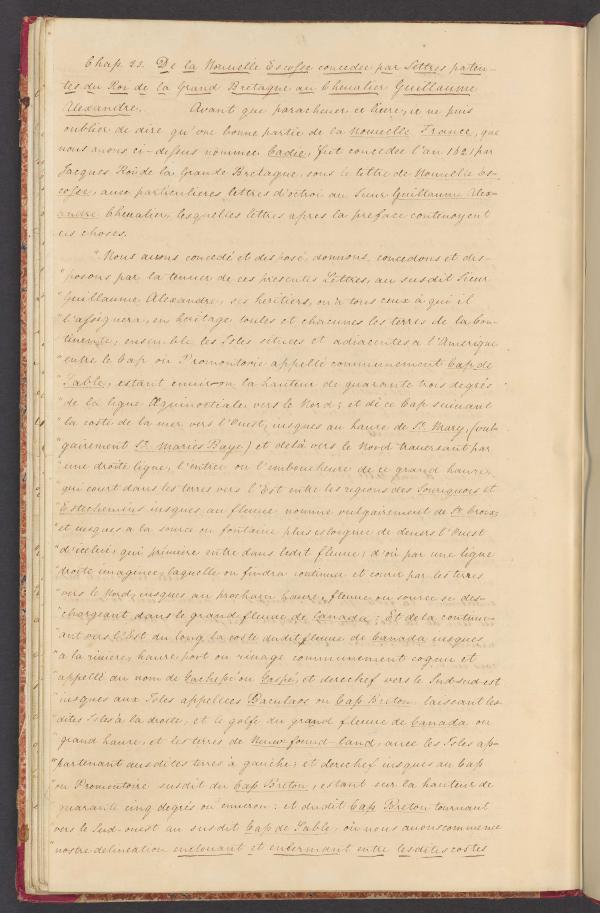 Chap. 23. De la Nouvelle Escosse concedée par Lettres paten-
tes du Roi de la Grand Bretagne au Chevalier Guillaume
Alexandre. Avant que parachever ce livre, ie ne puis
oublier de dire qu'une bonne partie de la Nouvelle France, que
nous avons ci-dessus nommée Cadie, fut concedée l'an 1621 par
Jacques Roi de la Grande Bretagne, sous le tittre de Nouvelle Es-
cosse, avec particulieres lettres d'octroi au Sieur Guillaume Alex-
andre Chevalier, lesquelles lettres apres la preface contenoyent
ces choses.
"Nous avons concedé et disposé, donnons, concedons et dis-
"posons par la teneur de ces presentes Lettres, au susdit Sieur
"Guillaume Alexandre, ses heritiers, ou à tous ceux à qui il
"l'assignera, en heritage toutes et chacunes les terres de la Con-
"tinente, ensemble les Isles situees et adiacentes a l'Amerique
"entre le Cap ou Promontoire appellé communement Cap de
"Sable, estant environ la hauteur de quarante trois degrés
"de la ligne Æquinoctiale vers le Nord; et dé ce Cap suivant
"la coste de la mer vers l'Ouest, iusques au havre de St. Mary, (vul-
"gairement St. Maries Baye) et delà vers le Nord traversant par
"une droite ligne, l'entrée ou l'emboucheure de ce grand havre,
qui court dans les terres vers l'Est entre les regions des Souriquois et
Estechemins iusques au fleuve nommé vulgairement de St. Croix;
"et iusques a la source ou fontaine plus esloignée de devers l'Ouest
"d'icelui, qui premiere entre dans ledit fleuve; d'où par une ligne
droite imaginée, laquelle on findra continuer et courir par les terres
"vers le Nord, iusques au prochain havre, fleuve, ou source se des-
"chargeant dans le grand fleuve de Canada; Et de la continu-
"ant vers l'Est du long la coste dudit fleuve de Canada iusques
"à la riviere, havre, port ou rivage communement cognu et
"appellé du nom de Gachepé ou Gaspé, et derechef vers le Sud-sud-est
"iusques aux Isles appellées Bacalaos ou Cap Breton, laissant les-
"dites Isles à la droite, et le golfe du grand fleuve de Canada ou
"grand havre, et les terres de Neuwfound-land, avec les Isles ap-
"partenant ausdices terres à gauche; et derechef iusques au Cap
"ou Promontoire susdit du Cap Breton, estant sur la hauteur de
"quarante cinq degrés ou environ: et dudit Cap Breton tournant
vers le Sud-ouest au susdit Cap de Sable, où nous avons commencé
"nostre delineation enclouant et enfermant entre lesdites costes